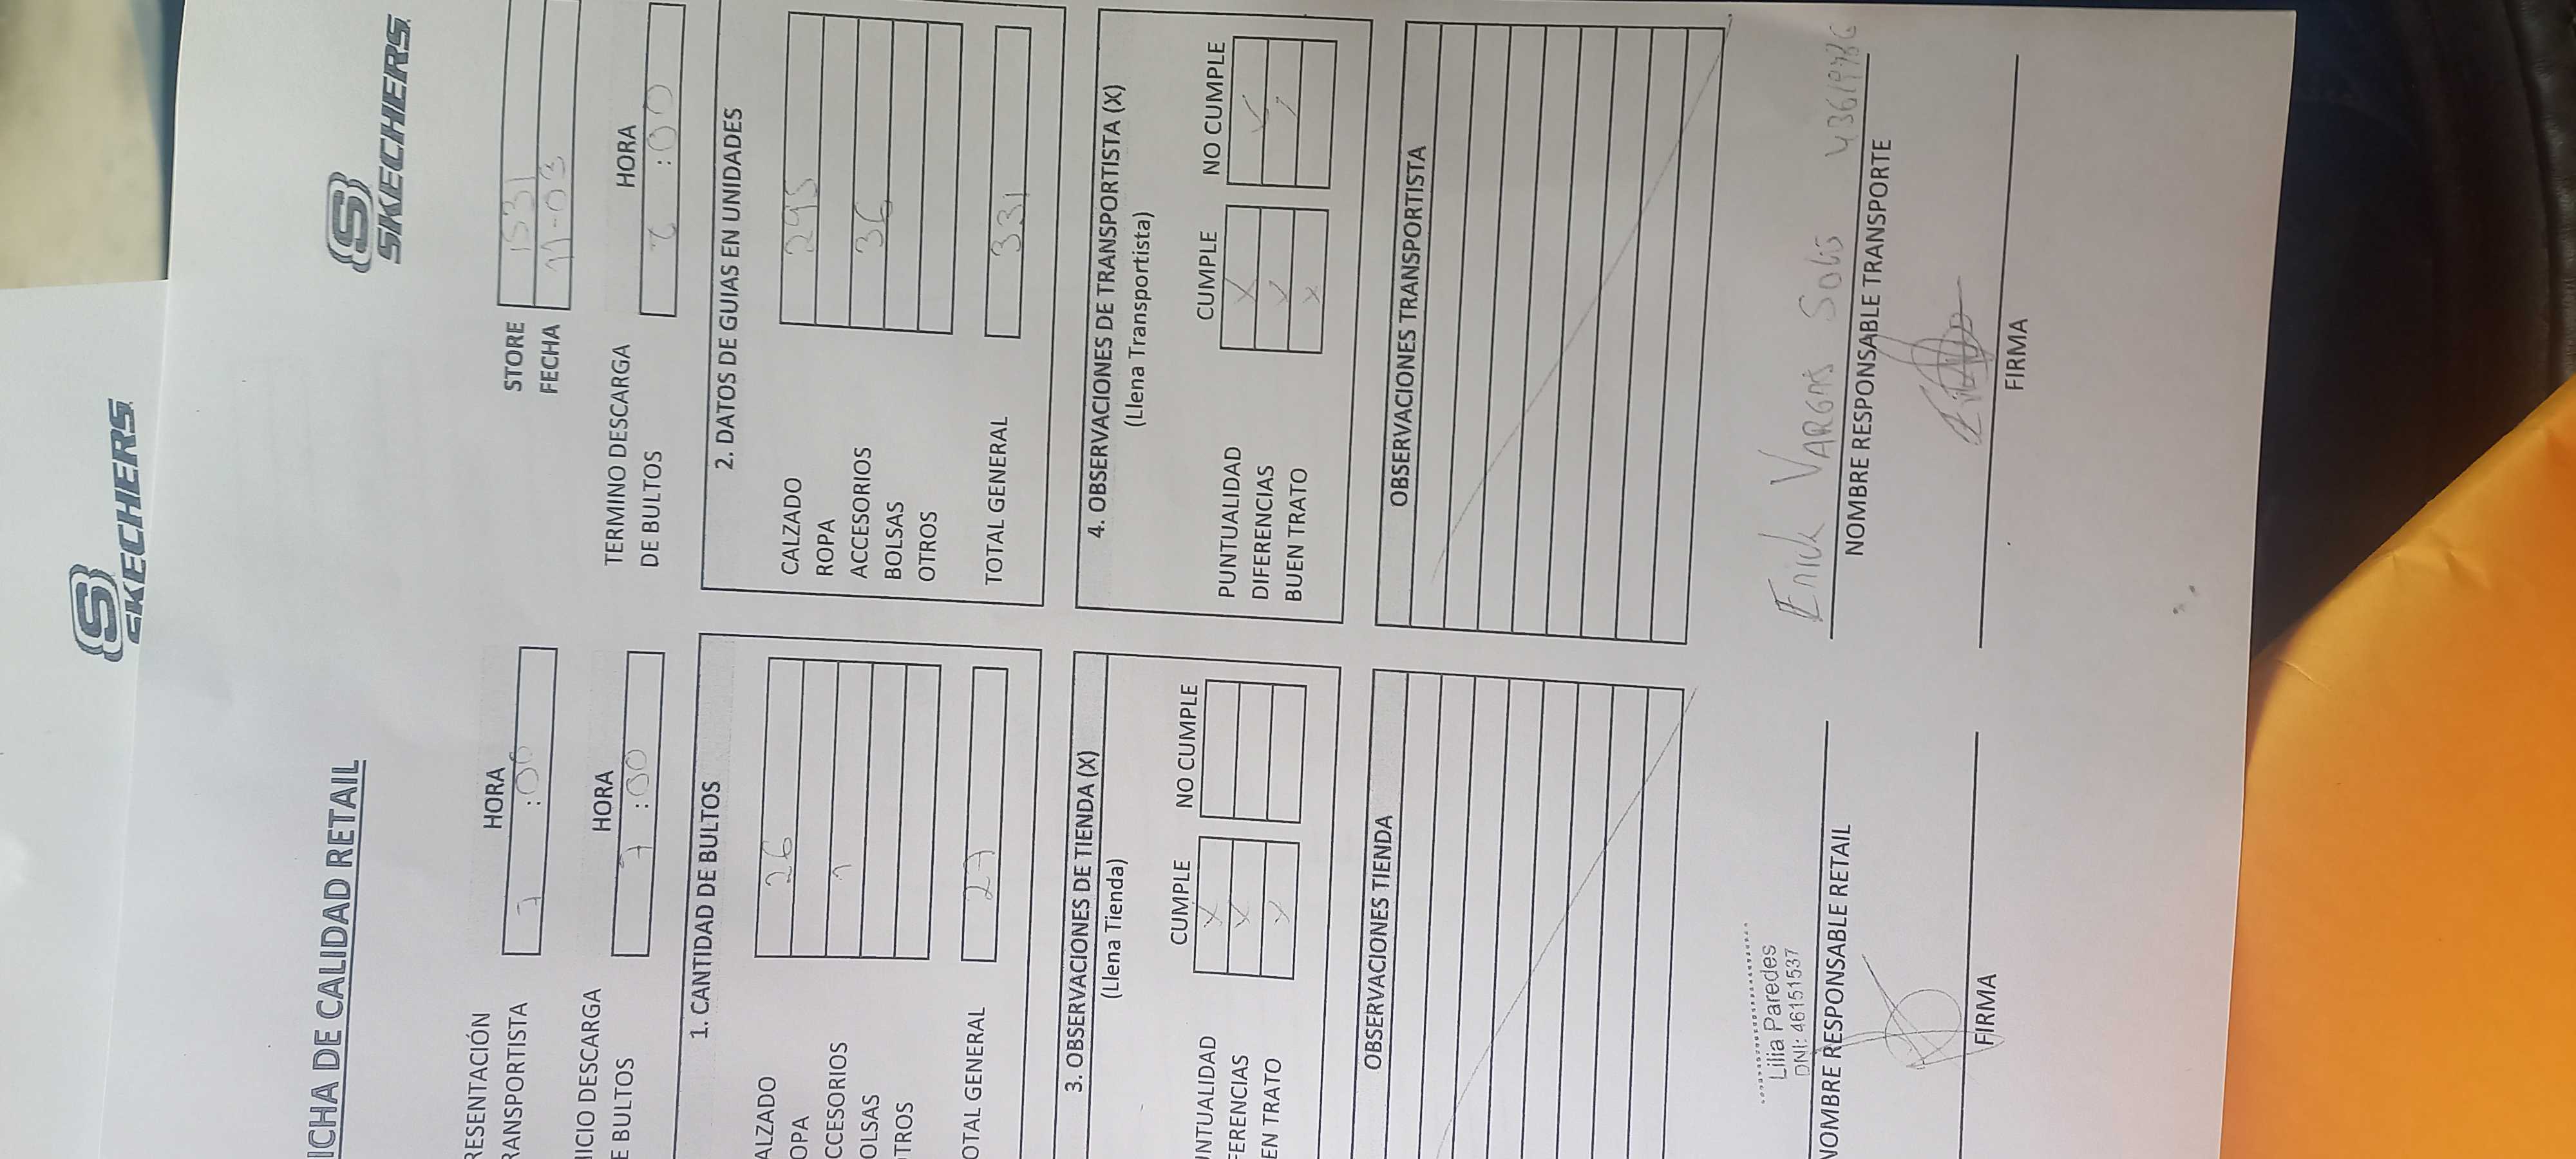 SKECHERS
SKECHERS
ICHA DE CALIDAD RETAIL
STORE 1531
FECHA 11-03
RESENTACIÓN
RANSPORTISTA
HORA
7 :00
ICIO DESCARGA
E BULTOS
HORA
7 :00
TERMINO DESCARGA
DE BULTOS
HORA
:00
1. CANTIDAD DE BULTOS
ALZADO 26
OPA
CCESORIOS 1
OLSAS
TROS
OTAL GENERAL 27
2. DATOS DE GUIAS EN UNIDADES
CALZADO 295
ROPA
ACCESORIOS 36
BOLSAS
OTROS
TOTAL GENERAL 331
3. OBSERVACIONES DE TIENDA (X)
(Llena Tienda)
CUMPLE NO CUMPLE
NTUALIDAD X
FERENCIAS X
EN TRATO X
4. OBSERVACIONES DE TRANSPORTISTA (X)
(Llena Transportista)
CUMPLE NO CUMPLE
PUNTUALIDAD X
DIFERENCIAS X
BUEN TRATO X
OBSERVACIONES TIENDA
OBSERVACIONES TRANSPORTISTA
Lilia Paredes
DNI: 46151537
NOMBRE RESPONSABLE RETAIL
FIRMA
Erick VARGAS SOLIS
NOMBRE RESPONSABLE TRANSPORTE
FIRMA